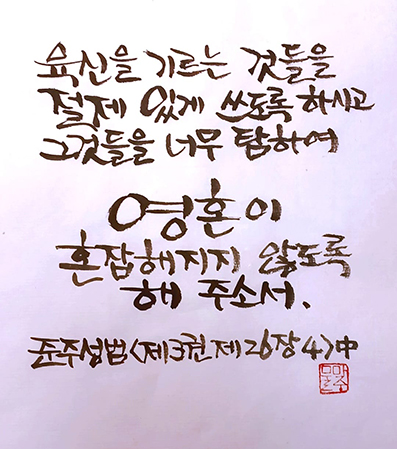 육신을 기르는 것들을
절제 있게 쓰도록 하시고
그것들을 너무 탐하여
영혼이
혼잡해지지 않도록
해 주소서.
준주성범<제3권 제26장 4>中